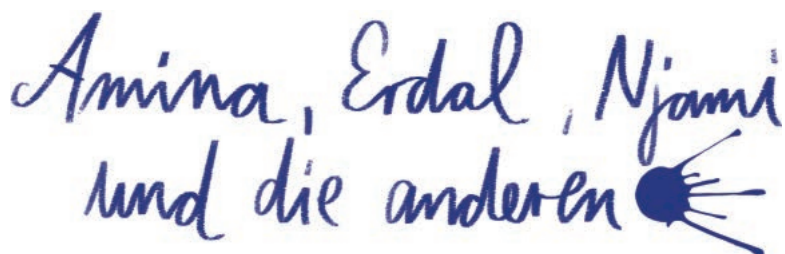 Amina, Erdal, Njami
und die anderen